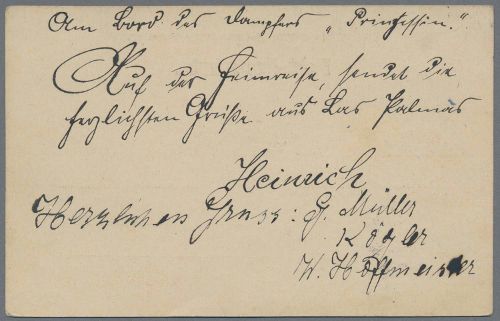 Am Bord des Dampfers „Prinzessin."
Auf der Heimreise, sendet die
herzlichsten Grüße aus Las Palmas
Heinrich
Herzlichen Gruss: G. Müller
Kögler
W. Hoffmeister